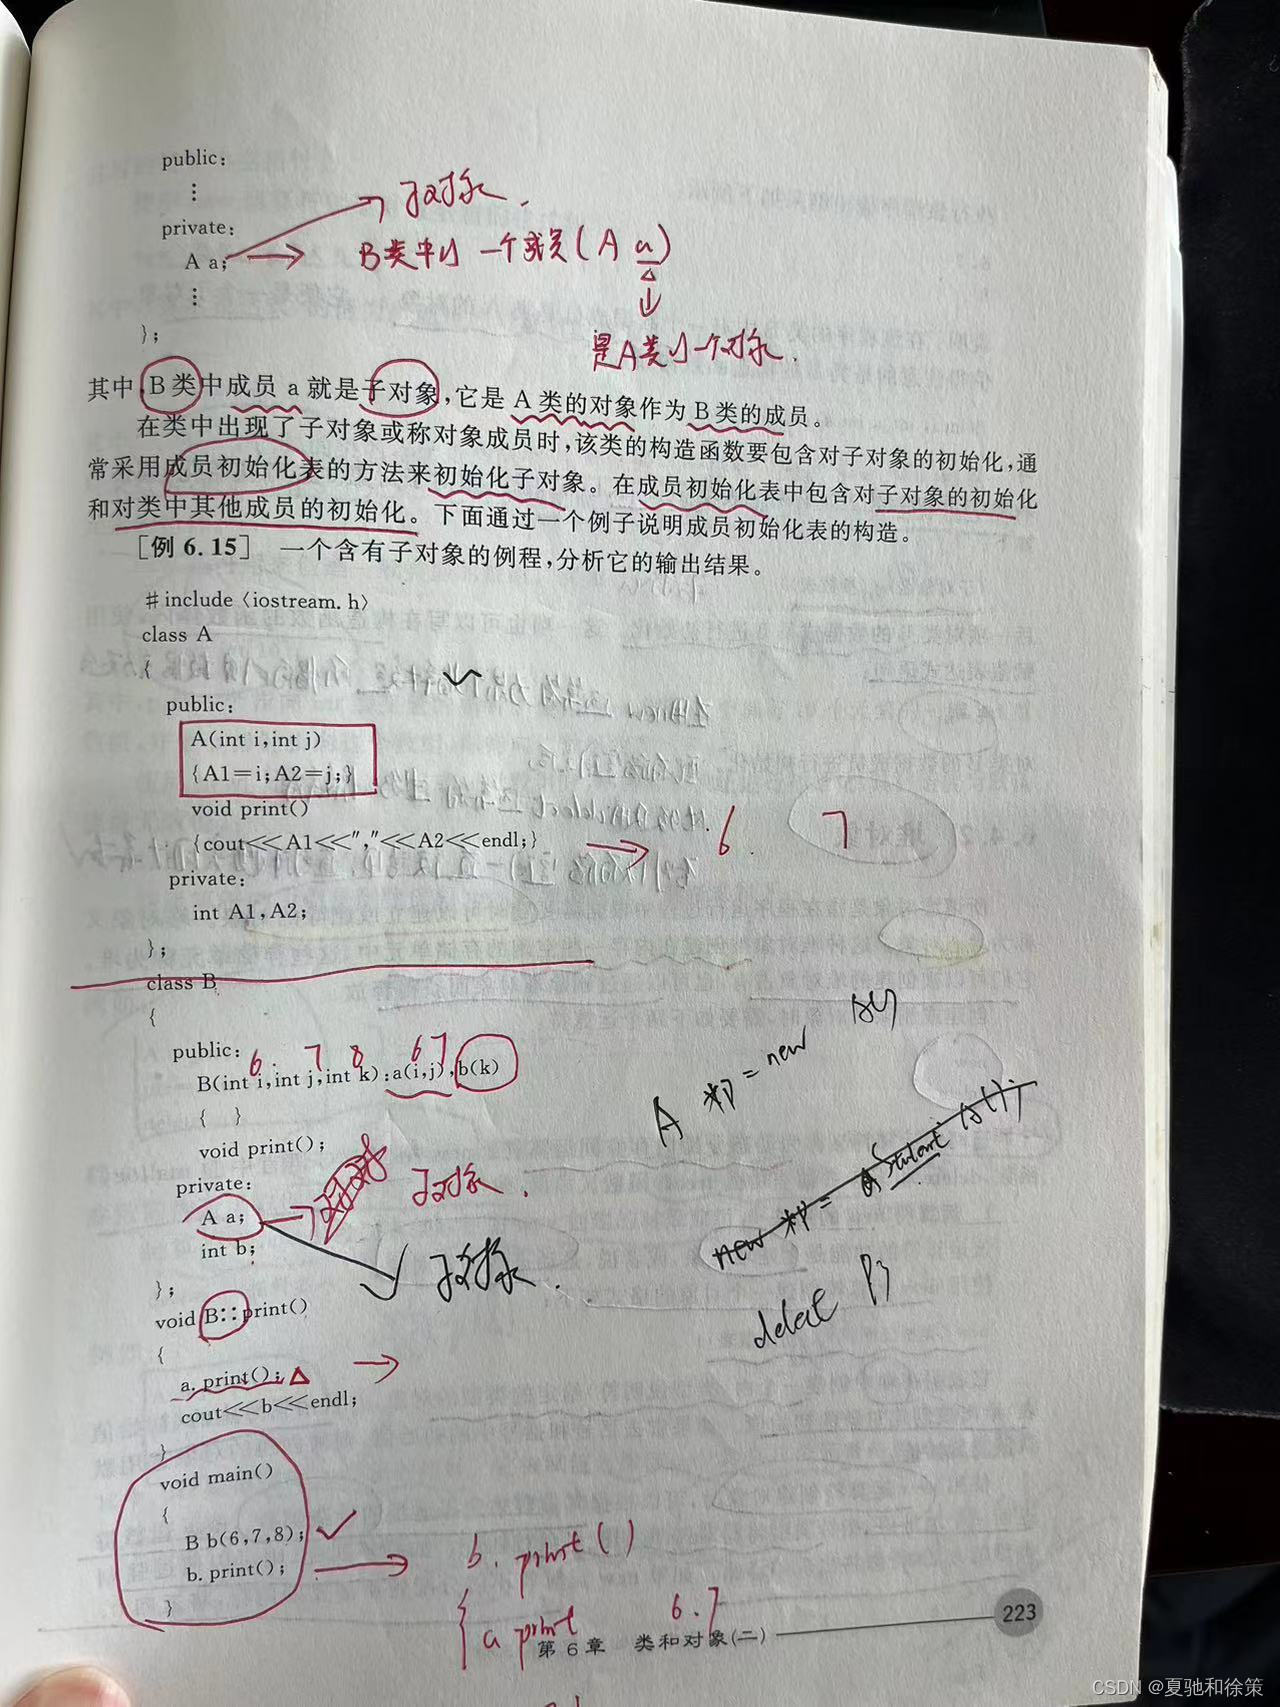 public:
⋮
子对象.
private:
A a;
B类中的一个成员(A a)
⋮
};
是A类的一个对象.
其中,B 类中成员 a 就是子对象,它是 A 类的对象作为 B 类的成员。
在类中出现了子对象或称对象成员时,该类的构造函数要包含对子对象的初始化,通
常采用成员初始化表的方法来初始化子对象。在成员初始化表中包含对子对象的初始化
和对类中其他成员的初始化。下面通过一个例子说明成员初始化表的构造。
[例 6.15] 一个含有子对象的例程,分析它的输出结果。
#include 〈iostream.h〉
class A
{
public:
A(int i,int j)
{A1=i;A2=j;}
void print()
{cout<<A1<<","<<A2<<endl;}
6. 7
private:
int A1,A2;
};
class B
{
public:
6. 7 8 6 7
B(int i,int j,int k):a(i,j),b(k)
{ }
void print();
private:
A a;
子对象.
int b;
子对象.
};
A *P = new
delet P;
void B::print()
{
a.print();
cout<<b<<endl;
}
void main()
{
B b(6,7,8);
b.print();
b. print()
}
a print 6.7
第 6 章 类和对象(二)
223
CSDN @夏驰和徐策